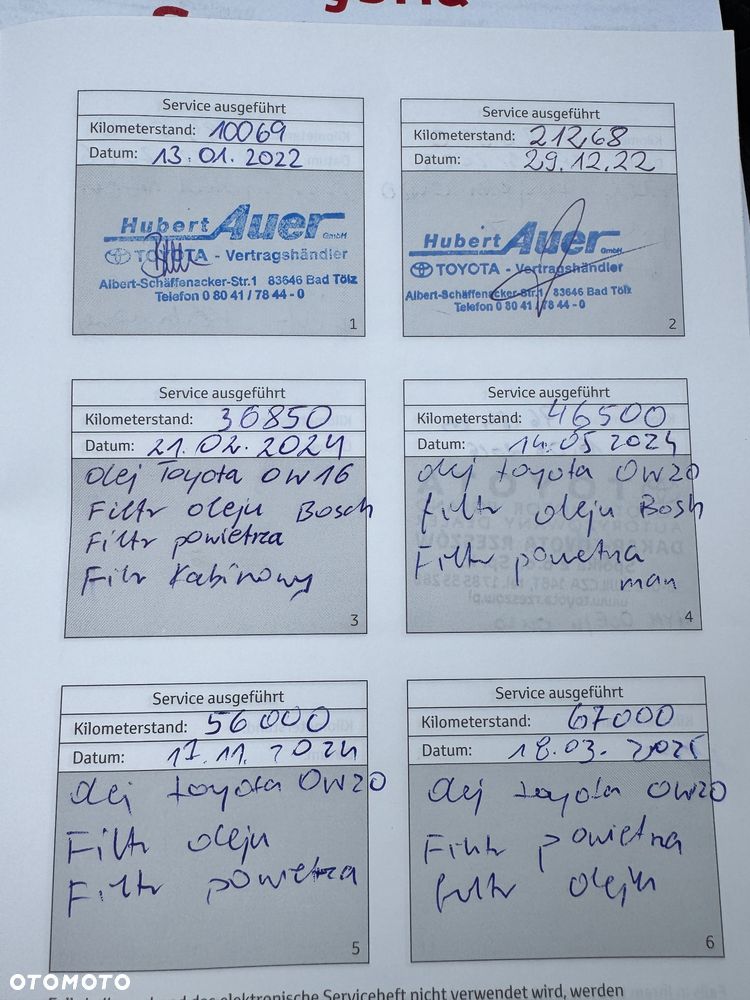 Service ausgeführt
Kilometerstand: 10069
Datum: 13.01.2022
Hubert Auer GmbH
TOYOTA - Vertragshändler
Albert-Schäffenacker-Str.1 83646 Bad Tölz
Telefon 0 80 41 / 78 44 - 0
1
Service ausgeführt
Kilometerstand: 21268
Datum: 29.12.22
Hubert Auer GmbH
TOYOTA - Vertragshändler
Albert-Schäffenacker-Str.1 83646 Bad Tölz
Telefon 0 80 41 / 78 44 - 0
2
Service ausgeführt
Kilometerstand: 36850
Datum: 21.02.2024
Olej Toyota 0W16
Filtr oleju Bosch
Filtr powietrza
Filtr Kabinowy
3
Service ausgeführt
Kilometerstand: 46500
Datum: 14.05 2024
olej toyota 0W20
filtr oleju Bosh
Filtr powietrza
man
4
Service ausgeführt
Kilometerstand: 56000
Datum: 17.11.2024
Olej toyota 0W20
Filtr oleju
Filtr powietrza
5
Service ausgeführt
Kilometerstand: 67000
Datum: 18.03.2025
Olej toyota 0W20
Filtr powietrza
filtr oleju
6
elektronische Serviceheft nicht verwendet wird, werden
OTOMOTO